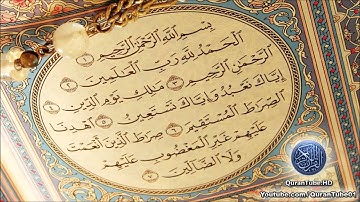 بِسْمِ اللَّهِ الرَّحْمَٰنِ الرَّحِيمِ ١
الْحَمْدُ لِلَّهِ رَبِّ الْعَالَمِينَ ٢
الرَّحْمَٰنِ الرَّحِيمِ ٣ مَلِكِ يَوْمِ الدِّينِ ٤
إِيَّاكَ نَعْبُدُ وَإِيَّاكَ نَسْتَعِينُ ٥ اهْدِنَا
الصِّرَاطَ الْمُسْتَقِيمَ ٦ صِرَاطَ الَّذِينَ أَنْعَمْتَ
عَلَيْهِمْ غَيْرِ الْمَغْضُوبِ عَلَيْهِمْ
وَلَا الضَّالِّينَ ٧
QuranTube.HD
Youtube.com/QuranTube01